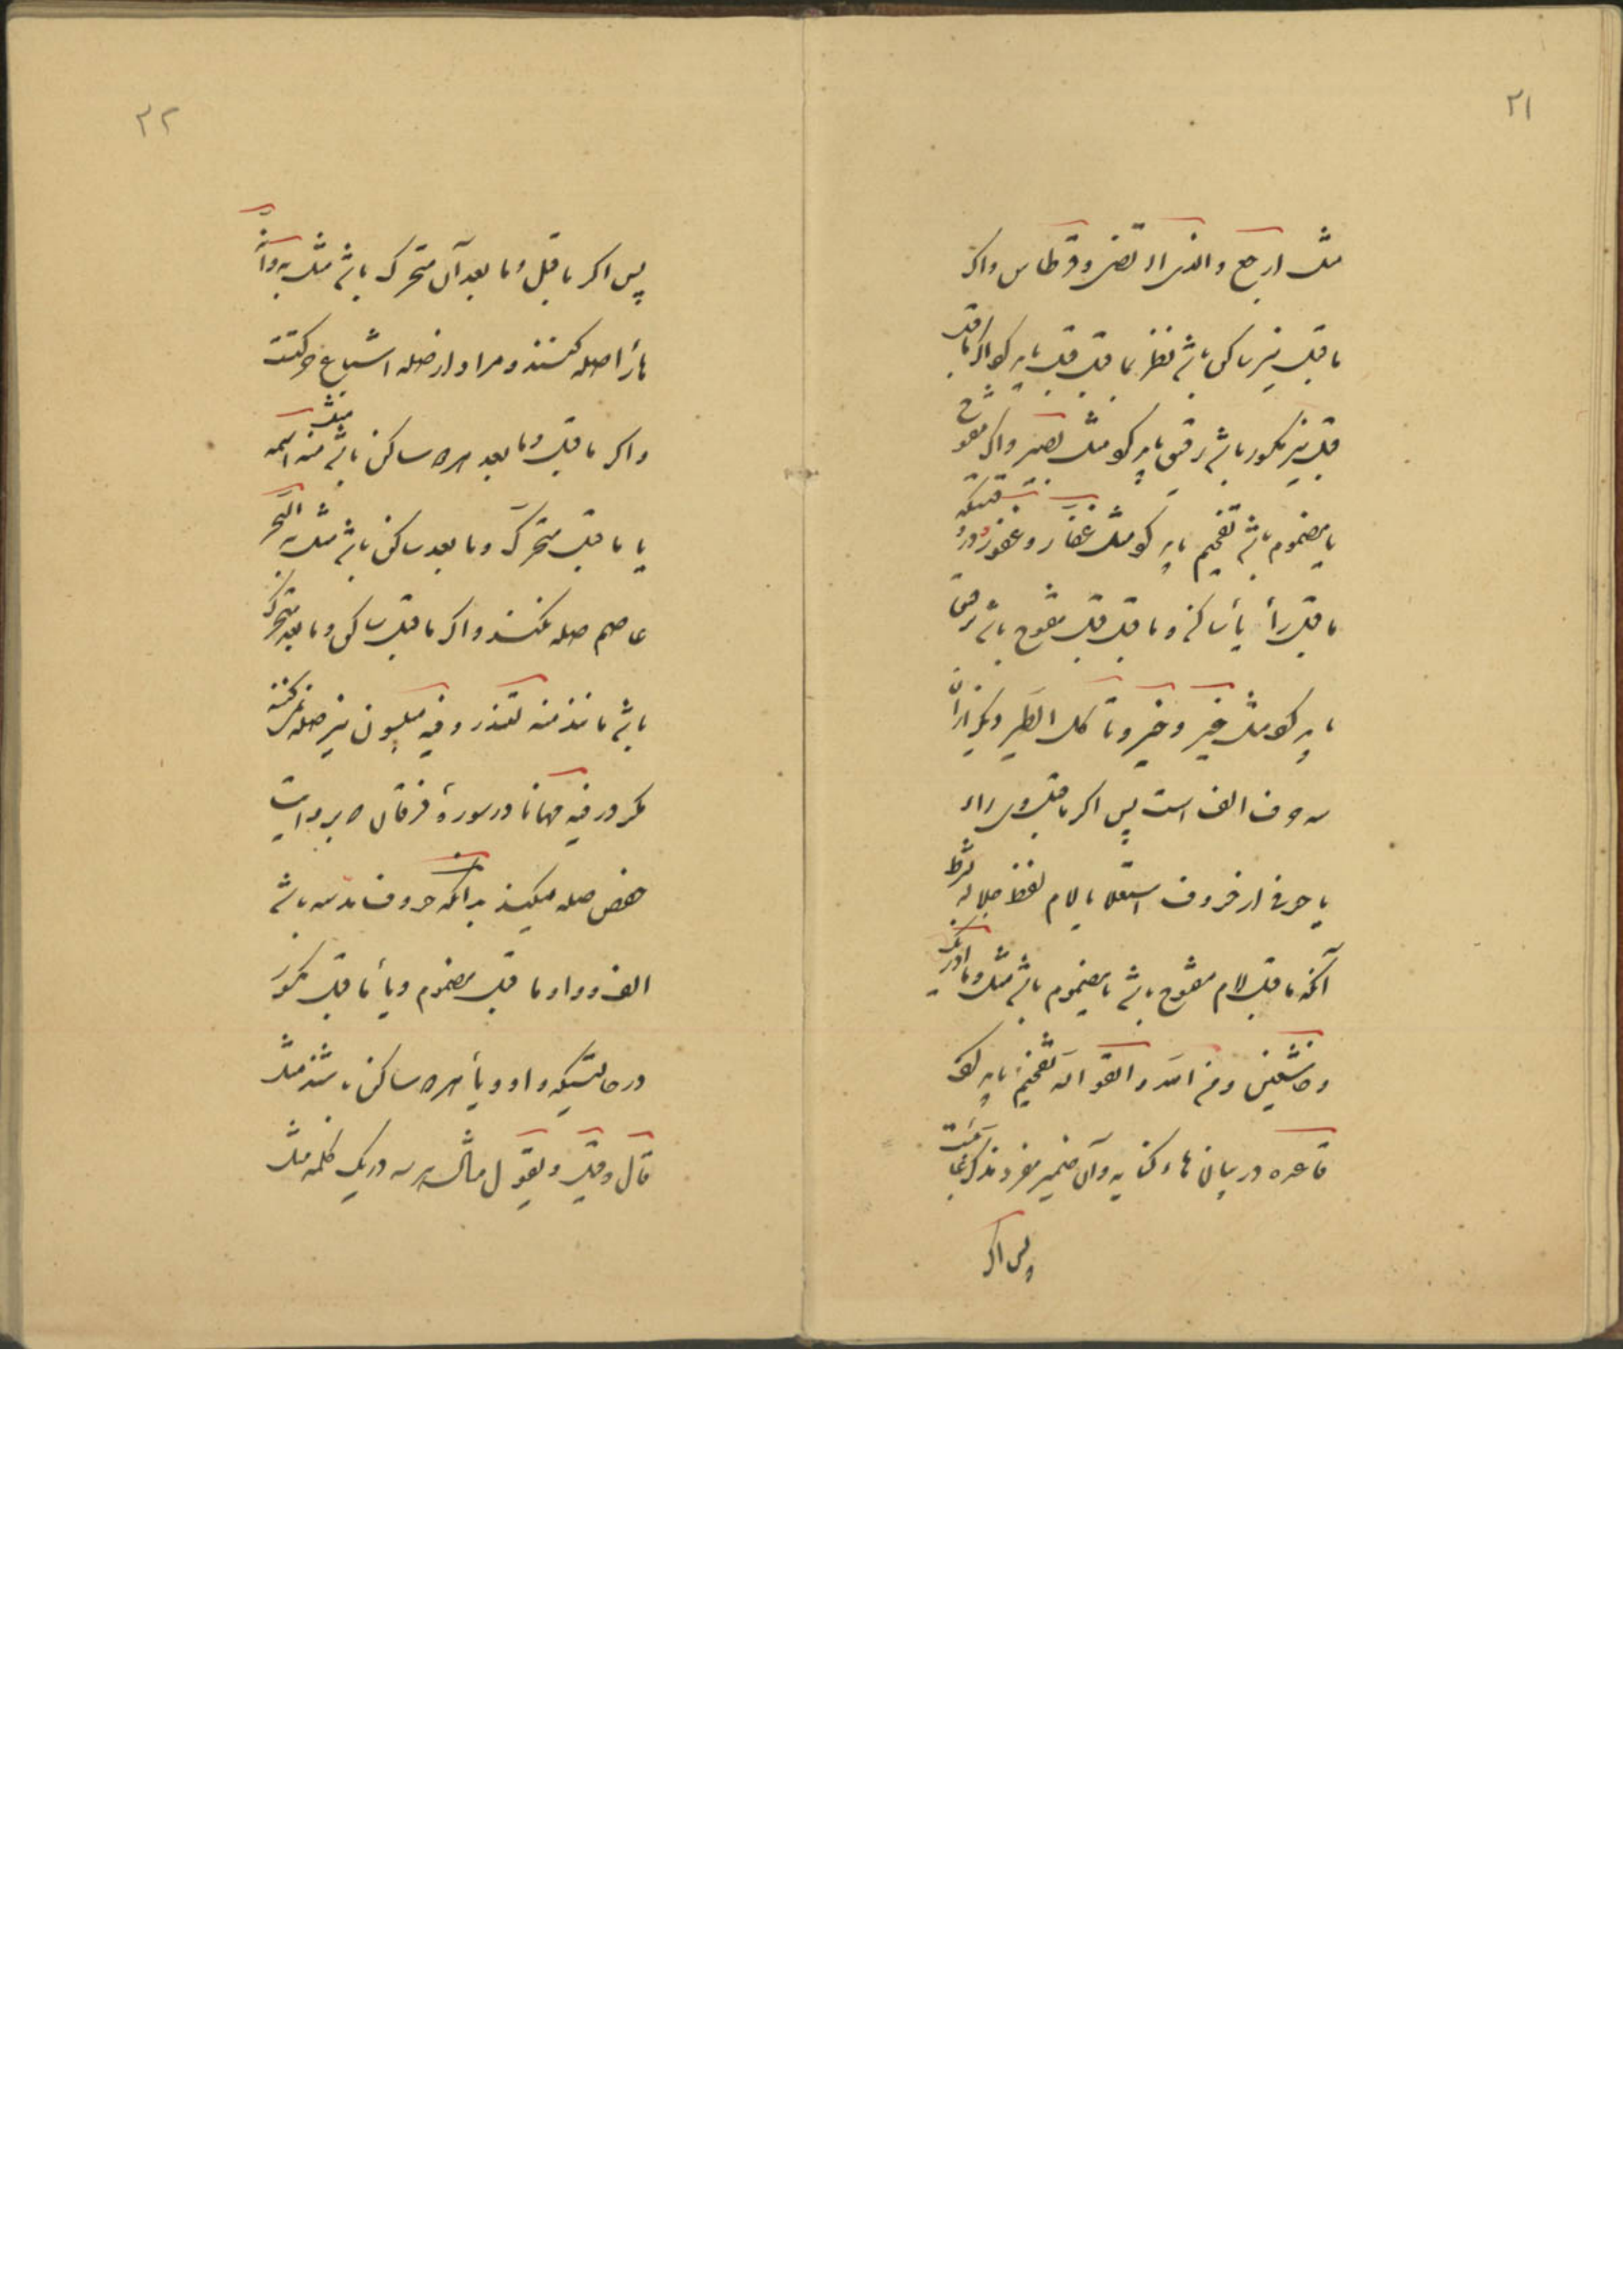 ۲۱
مثل ارجع والذی ارتضی وقرطاس واکر
ماقبل نیز ساکن باشد نظر بماقبل قبل باید کرد اکر ماقبل
قبل نیز مکسور باشد رقیق باید کرد مثل بصیر واکر مفتوح
یا مضموم باشد تفخیم باید کرد مثل غفار وغفور ودر وقتیکه
ماقبل رأ یأ ساکنه وماقبل قبل مفتوح باشد ترقیق
باید کرد مثل خیر وخیر وتأکل الطیر ودیکر از آن
سه حرف الف است پس اکر ماقبل وی راء
یا حرفی از حروف استعلا یا لام لفظ جلاله بشرط
آنکه ماقبل لام مفتوح باشد یا مضموم باشد مثل وما ادریک
وخاشعین ومن الله واتقوا الله تفخیم باید کرد
قاعده در بیان هاء کنایه وآن ضمیر مفرد مذکر غایب است
پس اکر
۲۲
پس اکر ماقبل وما بعد آن متحرک باشد مثل به وانه
هأ را صله کنند ومراد از صله اشباع حرکتست
واکر ماقبل وما بعد هر دو ساکن باشد مثل منه اسمه
یا ماقبل متحرک وما بعد ساکن باشد مثل به البحر
عاصم صله نکند واکر ماقبل ساکن وما بعد متحرک
باشد مانند منه لتنذر وفیه مبلسون نیز صله نمیکنند
مکر در فیه مهانا در سورۀ فرقان که بروایت
حفص صله میکنند بدانکه حروف مد سه باشد
الف وواو ماقبل مضموم ویأ ماقبل مکسور
در حالتیکه واو ویأ هر دو ساکن باشند مثل
قال وقیل ویقول مثال هر سه در یک کلمه مثل